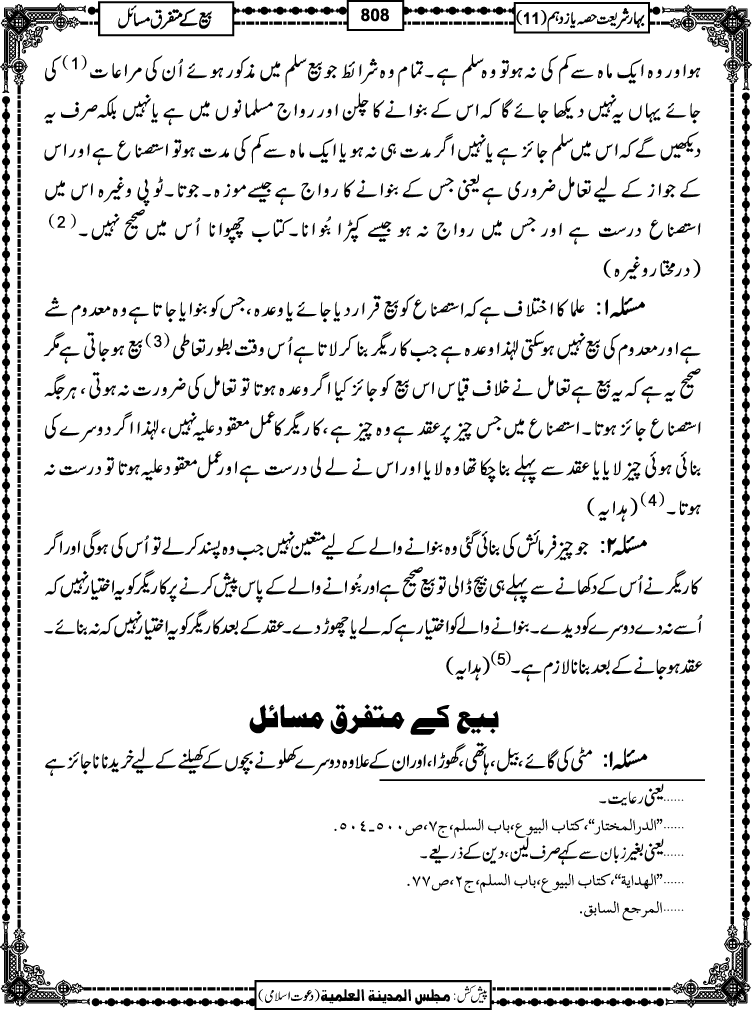 بہار شریعت حصہ یازدہم (11)
808
بیع کے متفرق مسائل
ہو اور وہ ایک ماہ سے کم کی نہ ہو تو وہ سلم ہے۔ تمام وہ شرائط جو بیع سلم میں مذکور ہوئے اُن کی مراعات (1) کی
جائے یہاں یہ نہیں دیکھا جائے گا کہ اس کے بنوانے کا چلن اور رواج مسلمانوں میں ہے یا نہیں بلکہ صرف یہ
دیکھیں گے کہ اس میں سلم جائز ہے یا نہیں اگر مدت ہی نہ ہو یا ایک ماہ سے کم کی مدت ہو تو استصناع ہے اور اس
کے جواز کے لیے تعامل ضروری ہے یعنی جس کے بنوانے کا رواج ہے جیسے موزہ۔ جوتا۔ ٹوپی وغیرہ اس میں
استصناع درست ہے اور جس میں رواج نہ ہو جیسے کپڑا بُنوانا۔ کتاب چھپوانا اُس میں صحیح نہیں۔ (2)
(درمختار وغیرہ)
مسئلہ ۱: علما کا اختلاف ہے کہ استصناع کو بیع قرار دیا جائے یا وعدہ، جس کو بنوایا جاتا ہے وہ معدوم شے
ہے اور معدوم کی بیع نہیں ہوسکتی لہٰذا وعدہ ہے جب کاریگر بنا کر لاتا ہے اُس وقت بطور تعاطی (3) بیع ہو جاتی ہے مگر
صحیح یہ ہے کہ یہ بیع ہے تعامل نے خلاف قیاس اس بیع کو جائز کیا اگر وعدہ ہوتا تو تعامل کی ضرورت نہ ہوتی، ہر جگہ
استصناع جائز ہوتا۔ استصناع میں جس چیز پر عقد ہے وہ چیز ہے، کاریگر کا عمل معقود علیہ نہیں، لہٰذا اگر دوسرے کی
بنائی ہوئی چیز لایا یا عقد سے پہلے بنا چکا تھا وہ لایا اور اس نے لے لی درست ہے اور عمل معقود علیہ ہوتا تو درست نہ
ہوتا۔ (4) (ہدایہ)
مسئلہ ۲: جو چیز فرمائش کی بنائی گئی وہ بنوانے والے کے لیے متعین نہیں جب وہ پسند کرلے تو اُس کی ہوگی اور اگر
کاریگر نے اُس کے دکھانے سے پہلے ہی بیچ ڈالی تو بیع صحیح ہے اور بنوانے والے کے پاس پیش کرنے پر کاریگر کو یہ اختیار نہیں کہ
اُسے نہ دے دوسرے کو دیدے۔ بنوانے والے کو اختیار ہے کہ لے یا چھوڑ دے۔ عقد کے بعد کاریگر کو یہ اختیار نہیں کہ نہ بنائے۔
عقد ہو جانے کے بعد بنانا لازم ہے۔ (5) (ہدایہ)
بیع کے متفرق مسائل
مسئلہ ۱: مٹی کی گائے، بیل، ہاتھی، گھوڑا، اور ان کے علاوہ دوسرے کھلونے بچوں کے کھیلنے کے لیے خریدنا ناجائز ہے
......یعنی رعایت۔
......"الدرالمختار"، کتاب البیوع، باب السلم، ج٧، ص٥٠٠-٥٠٤.
......یعنی بغیر زبان سے کہے صرف لین، دین کے ذریعے۔
......"الهداية"، کتاب البیوع، باب السلم، ج٢، ص٧٧.
......المرجع السابق.
پیش کش: مجلس المدینة العلمیة (دعوت اسلامی)